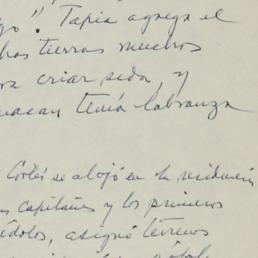 go". Tapia agrega el
has tierras muchos
ra criar seda, y
uacan tenía labranza
Cortés se alojó en la residencia
us capitanes y los primeros
ídolos, asignó terrenos